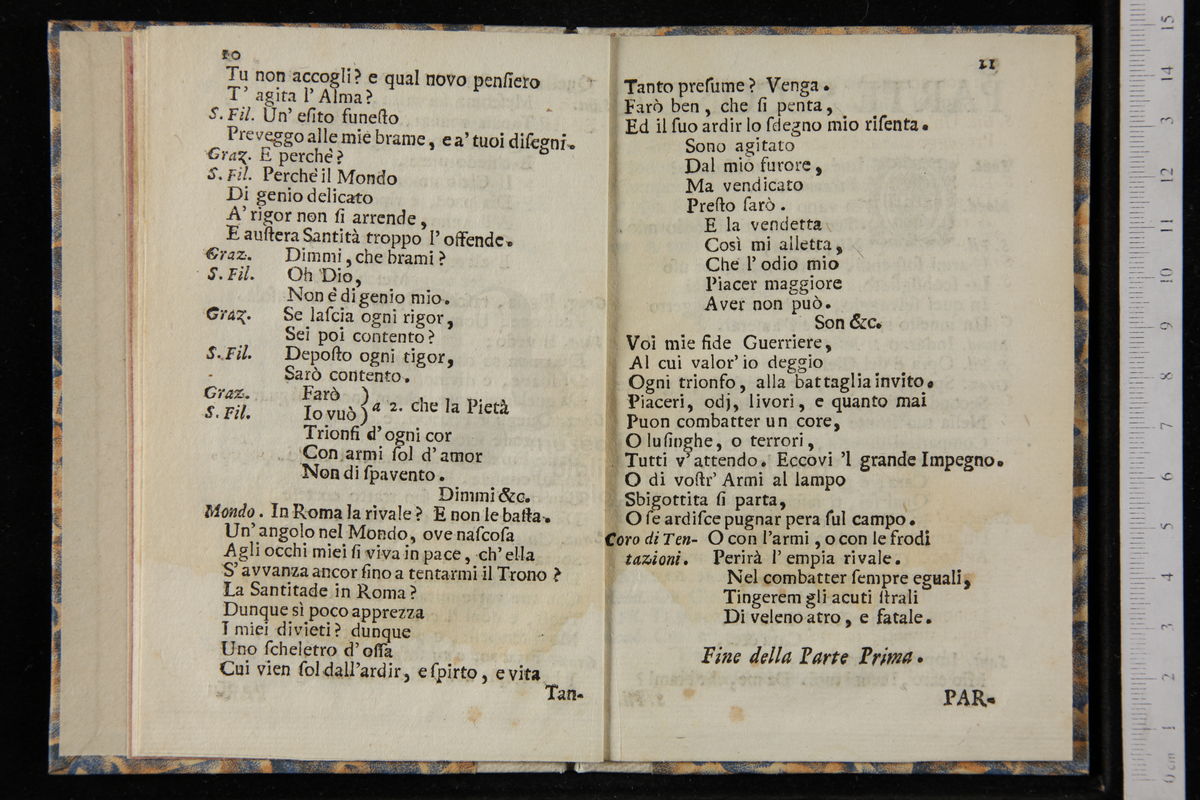 10
Tu non accogli? e qual novo penſiero
T' agita l' Alma?
S. Fil. Un' eſito funeſto
Preveggo alle mie brame, e a' tuoi diſegni.
Graz. E perchè?
S. Fil. Perchè il Mondo
Di genio delicato
A' rigor non ſi arrende,
E auſtera Santità troppo l' offende.
Graz. Dimmi, che brami?
S. Fil. Oh Dio,
Non è di genio mio.
Graz. Se laſcia ogni rigor,
Sei poi contento?
S. Fil. Depoſto ogni rigor,
Sarò contento.
Graz. Farò )
S. Fil. Io vuò ) a 2. che la Pietà
Trionfi d' ogni cor
Con armi ſol d' amor
Non di ſpavento.
Dimmi &c.
Mondo. In Roma la rivale? E non le baſta.
Un' angolo nel Mondo, ove naſcoſa
Agli occhi miei ſi viva in pace, ch' ella
S' avvanza ancor ſino a tentarmi il Trono?
La Santitade in Roma?
Dunque sì poco apprezza
I miei divieti? dunque
Uno ſcheletro d' oſſa
Cui vien ſol dall' ardir, e ſpirto, e vita
Tan-
11
Tanto preſume? Venga.
Farò ben, che ſi penta,
Ed il ſuo ardir lo ſdegno mio riſenta.
Sono agitato
Dal mio furore,
Ma vendicato
Preſto ſarò.
E la vendetta
Così mi alletta,
Che l' odio mio
Piacer maggiore
Aver non può.
Son &c.
Voi mie fide Guerriere,
Al cui valor' io deggio
Ogni trionfo, alla battaglia invito.
Piaceri, odj, livori, e quanto mai
Puon combatter un core,
O luſinghe, o terrori,
Tutti v' attendo. Eccovi 'l grande Impegno.
O di voſtr' Armi al lampo
Sbigottita ſi parta,
O ſe ardiſce pugnar pera ſul campo.
Coro di Ten- O con l'armi, o con le frodi
tazioni. Perirà l' empia rivale.
Nel combatter ſempre eguali,
Tingerem gli acuti ſtrali
Di veleno atro, e fatale.
Fine della Parte Prima.
PAR-